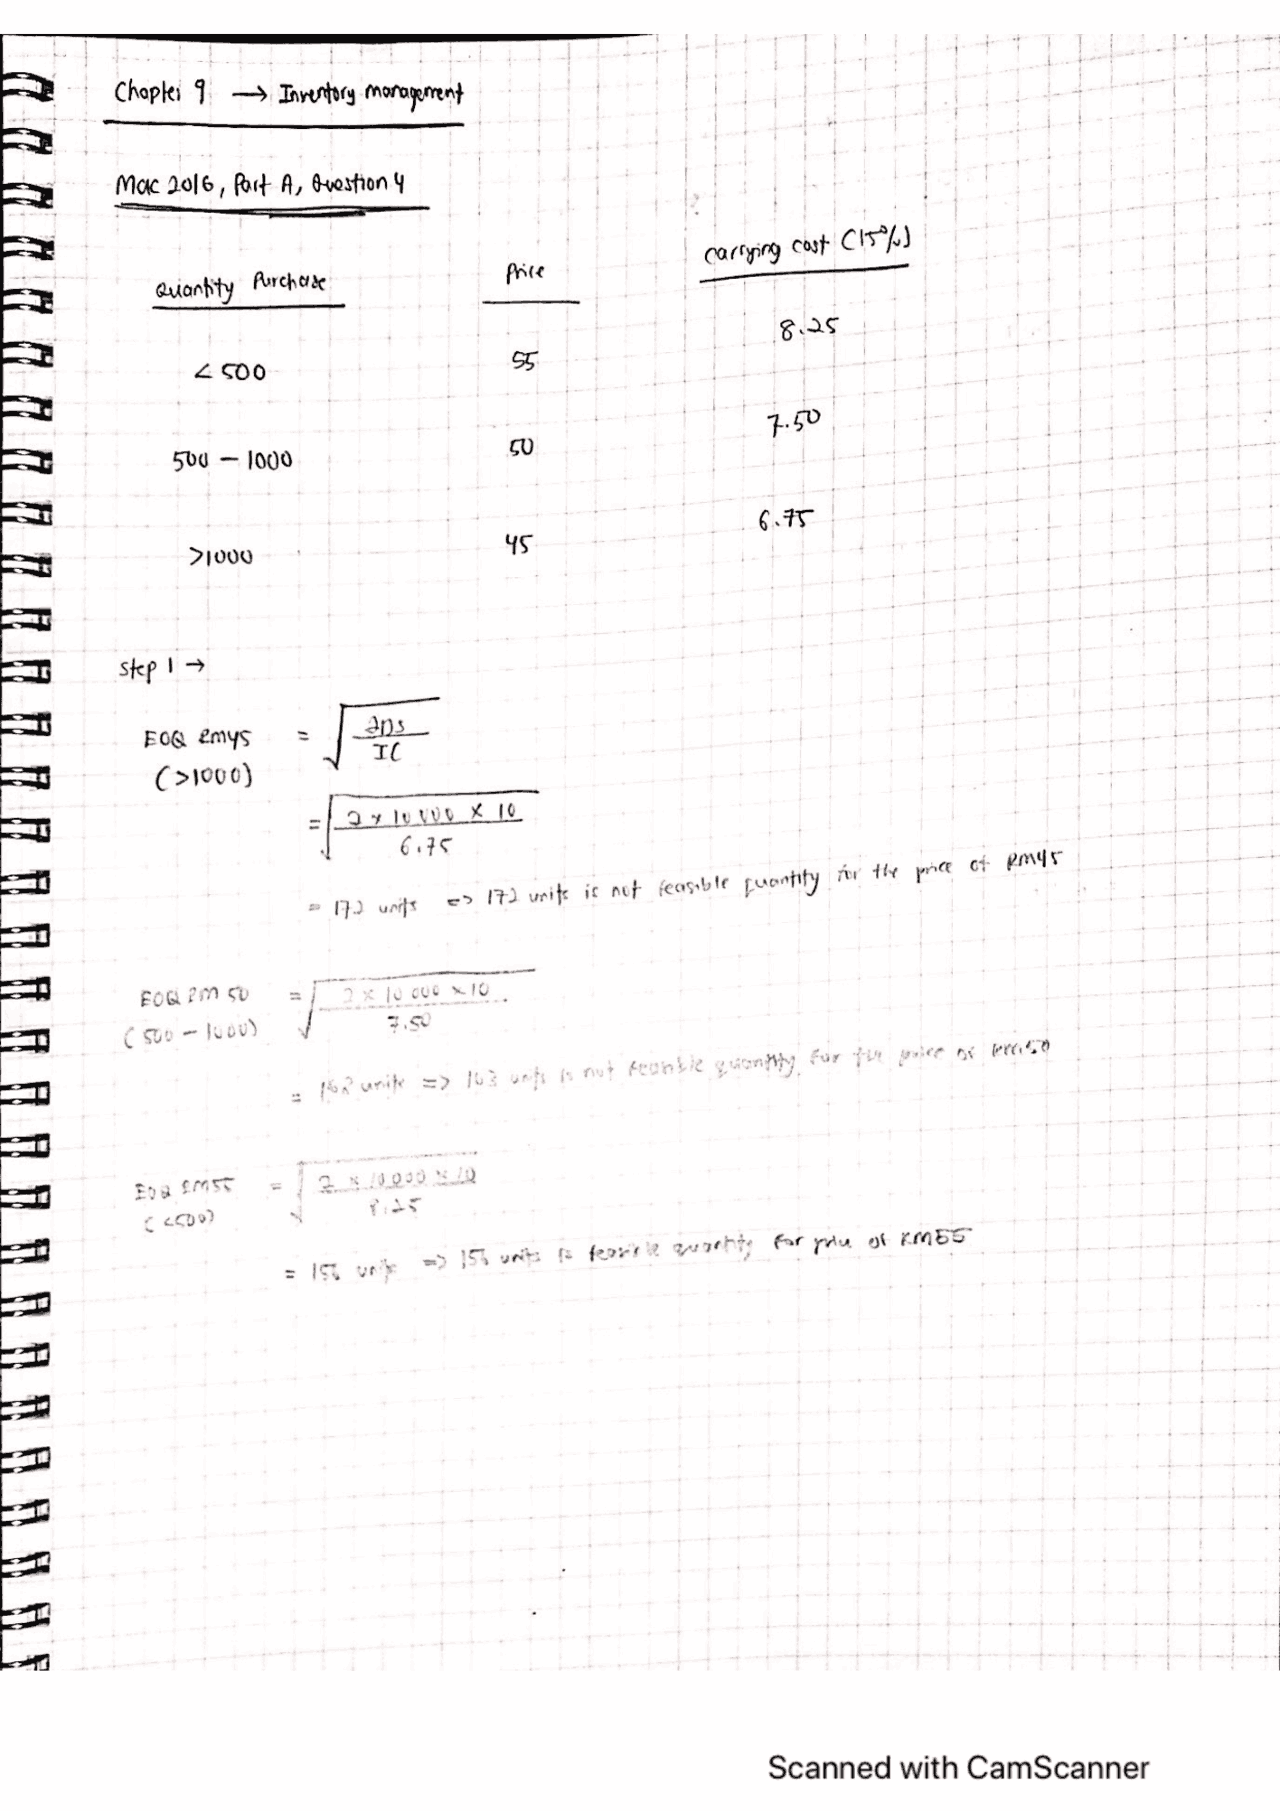 Chapter 9 → Inventory management
Mac 2016, Part A, Question 4
Quantity Purchase Price carrying cost (15%)
< 500 55 8.25
500 - 1000 50 7.50
>1000 45 6.75
Step 1 →
EOQ RM45 = √ 2DS / IC
(>1000)
= √ 2 x 10 000 x 10 / 6.75
= 172 units => 172 units is not feasible quantity for the price of RM45
EOQ RM 50 = √ 2 x 10 000 x 10 / 7.50
(500 - 1000)
= units => 163 units is not feasible quantity for the price of RM50
EOQ RM55 = √ 2 x 10 000 x 10 / 8.25
(<500)
= 156 units => 156 units is feasible quantity for price of RM55
Scanned with CamScanner